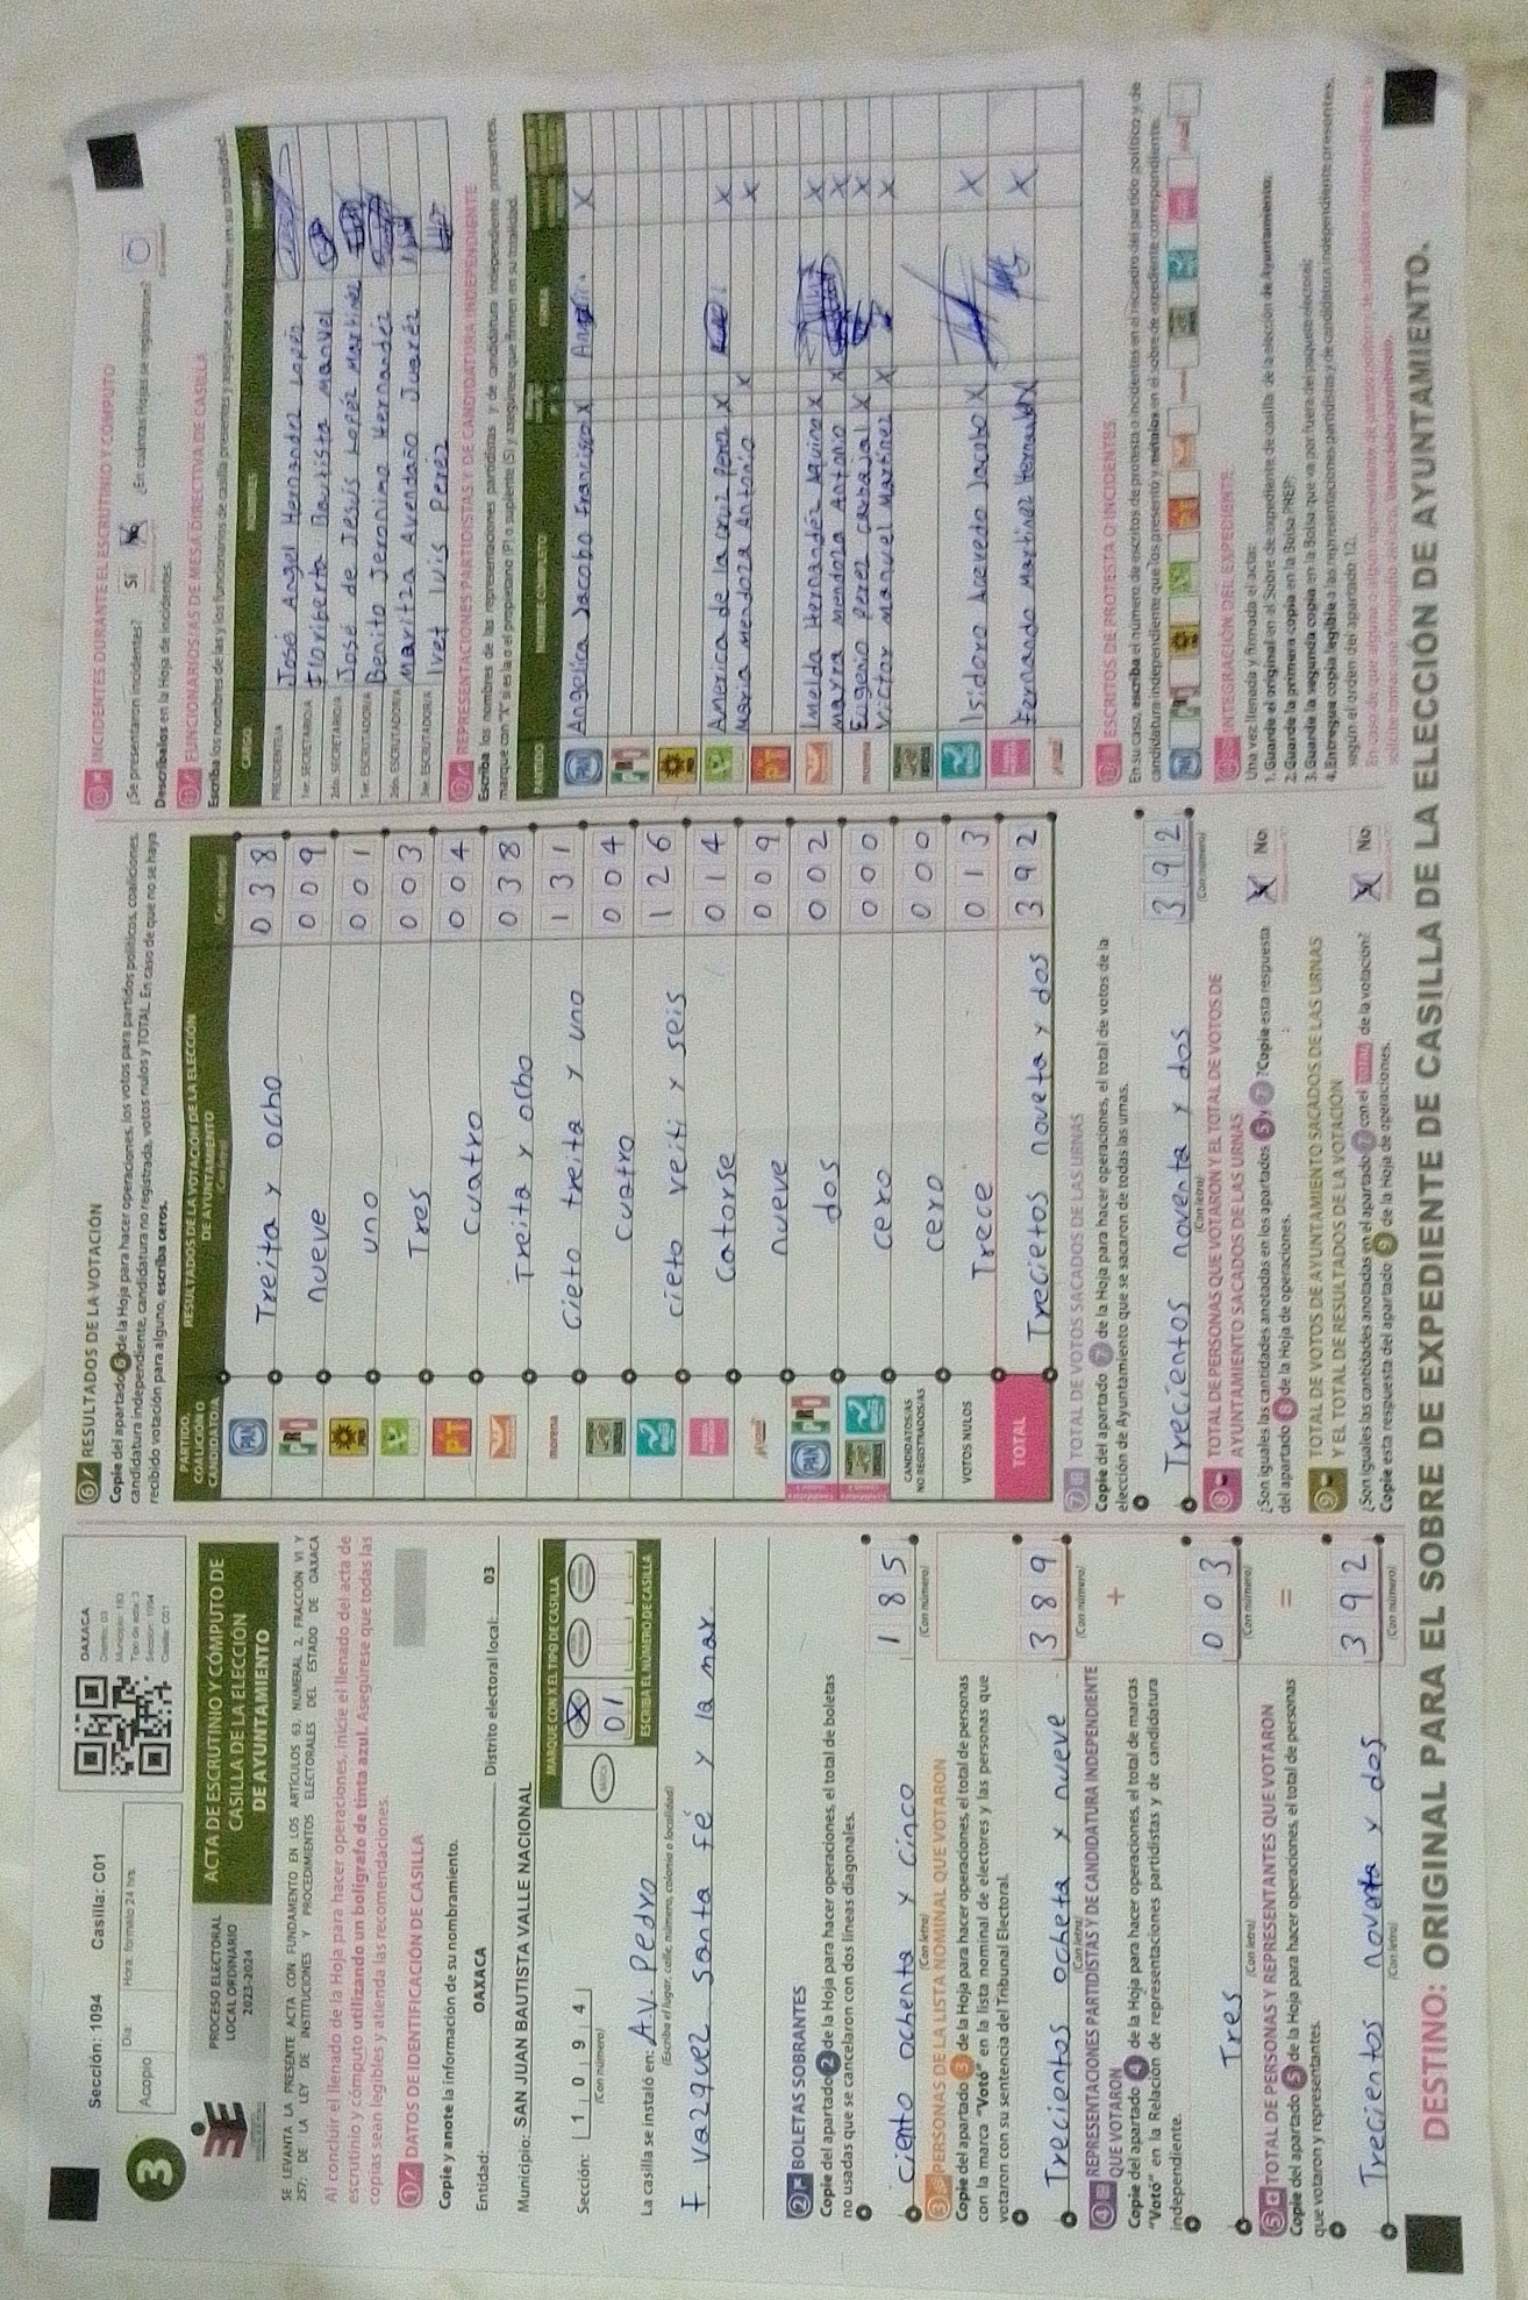 Sección: 1094 Casilla: C01
Acopio
Día:
Hora: formato 24 hrs.
OAXACA
Distrito: 03
Municipio: 183
Tipo de acta: 3
Sección: 1094
Casilla: C01
3
PROCESO ELECTORAL
LOCAL ORDINARIO
2023-2024
ACTA DE ESCRUTINIO Y CÓMPUTO DE
CASILLA DE LA ELECCIÓN
DE AYUNTAMIENTO
SE LEVANTA LA PRESENTE ACTA CON FUNDAMENTO EN LOS ARTÍCULOS 63, NUMERAL 2, FRACCIÓN VI Y
257; DE LA LEY DE INSTITUCIONES Y PROCEDIMIENTOS ELECTORALES DEL ESTADO DE OAXACA
Al concluir el llenado de la Hoja para hacer operaciones, inicie el llenado del acta de
escrutinio y cómputo utilizando un bolígrafo de tinta azul. Asegúrese que todas las
copias sean legibles y atienda las recomendaciones.
1 DATOS DE IDENTIFICACIÓN DE CASILLA
Copie y anote la información de su nombramiento.
Entidad: OAXACA Distrito electoral local: 03
Municipio: SAN JUAN BAUTISTA VALLE NACIONAL
Sección: 1 0 9 4
(Con número)
MARQUE CON X EL TIPO DE CASILLA
X
01
ESCRIBA EL NÚMERO DE CASILLA
La casilla se instaló en: A.V. Pedro
(Escriba el lugar, calle, número, colonia o localidad)
F Vazquez Santa fé y la mar.
2 BOLETAS SOBRANTES
Copie del apartado 2 de la Hoja para hacer operaciones, el total de boletas
no usadas que se cancelaron con dos líneas diagonales.
ciento ochenta y cinco 185
(Con letra) (Con número)
3 PERSONAS DE LA LISTA NOMINAL QUE VOTARON
Copie del apartado 3 de la Hoja para hacer operaciones, el total de personas
con la marca "Votó" en la lista nominal de electores y las personas que
votaron con su sentencia del Tribunal Electoral.
Trecientos ocheta y nueve 389
(Con letra) (Con número)
+
4 REPRESENTACIONES PARTIDISTAS Y DE CANDIDATURA INDEPENDIENTE
QUE VOTARON
Copie del apartado 4 de la Hoja para hacer operaciones, el total de marcas
"Votó" en la Relación de representaciones partidistas y de candidatura
independiente.
Tres 003
(Con letra) (Con número)
=
5 TOTAL DE PERSONAS Y REPRESENTANTES QUE VOTARON
Copie del apartado 5 de la Hoja para hacer operaciones, el total de personas
que votaron y representantes.
Trecientos noventa y dos 392
(Con letra) (Con número)
6 RESULTADOS DE LA VOTACIÓN
Copie del apartado 6 de la Hoja para hacer operaciones, los votos para partidos políticos, coaliciones,
candidatura independiente, candidatura no registrada, votos nulos y TOTAL. En caso de que no se haya
recibido votación para alguno, escriba ceros.
PARTIDO,
COALICIÓN O
CANDIDATO/A
RESULTADOS DE LA VOTACIÓN DE LA ELECCIÓN
DE AYUNTAMIENTO
(Con letra) (Con número)
PAN Treita y ocho 038
PRI nueve 009
PRD uno 001
Tres 003
PT cuatro 004
Treita y ocho 038
morena cieto treita y uno 131
cuatro 004
cieto veiti y seis 126
Catorse 014
nueve 009
PAN PRI dos 002
cero 000
CANDIDATOS/AS
NO REGISTRADOS/AS cero 000
VOTOS NULOS Trece 013
TOTAL Trecietos noveta y dos 392
7 TOTAL DE VOTOS SACADOS DE LAS URNAS
Copie del apartado 7 de la Hoja para hacer operaciones, el total de votos de la
elección de Ayuntamiento que se sacaron de todas las urnas.
Trecientos noventa y dos 392
(Con letra) (Con número)
8 TOTAL DE PERSONAS QUE VOTARON Y EL TOTAL DE VOTOS DE
AYUNTAMIENTO SACADOS DE LAS URNAS
¿Son iguales las cantidades anotadas en los apartados 5 y 7? Copie esta respuesta
del apartado 8 de la Hoja de operaciones.
X No
9 TOTAL DE VOTOS DE AYUNTAMIENTO SACADOS DE LAS URNAS
Y EL TOTAL DE RESULTADOS DE LA VOTACIÓN
¿Son iguales las cantidades anotadas en el apartado 7 con el TOTAL de la votación?
Copie esta respuesta del apartado 9 de la Hoja de operaciones.
X No
10 INCIDENTES DURANTE EL ESCRUTINIO Y CÓMPUTO
¿Se presentaron incidentes? Sí ¿En cuántas Hojas se registraron?
Descríbalos en la Hoja de incidentes.
11 FUNCIONARIOS/AS DE MESA DIRECTIVA DE CASILLA
Escriba los nombres de las y los funcionarios de casilla presentes y asegúrese que firmen en su totalidad.
CARGO NOMBRES
PRESIDENTE/A José Angel Hernandez Lopéz
1er. SECRETARIO/A Floriberto Bautista Manuel
2do. SECRETARIO/A José de Jesus Lopéz Martinez
1er. ESCRUTADOR/A Benito Jeronimo Hernandéz
2do. ESCRUTADOR/A Maritza Avendaño Juaréz
3er. ESCRUTADOR/A Ivet luis Peréz
12 REPRESENTACIONES PARTIDISTAS Y DE CANDIDATURA INDEPENDIENTE
Escriba los nombres de las representaciones partidistas y de candidatura independiente presentes,
marque con "X" si es la o el propietario (P) o suplente (S) y asegúrese que firmen en su totalidad.
PARTIDO NOMBRE COMPLETO FIRMA
PAN Angelica Jacobo Francisco X X
PRI
PRD
America de la cruz Perez X X
Maria Mendoza Antonio X X
PT
Imelda Hernandéz Aquino X X
Mayra Mendoza Antonio X X
morena Eugenio Perez carbajal X X
Victor Manuel Martinez X X
Isidoro Acevedo Jacobo X X
Fernando Martinez Hernandez X X
13 ESCRITOS DE PROTESTA O INCIDENTES
En su caso, escriba el número de escritos de protesta o incidentes en el recuadro del partido político y de
candidatura independiente que los presentó y métalos en el sobre de expediente correspondiente.
INTEGRACIÓN DEL EXPEDIENTE
Una vez llenada y firmada el acta:
1. Guarde el original en el Sobre de expediente de casilla de la elección de Ayuntamiento;
2. Guarde la primera copia en la Bolsa PREP;
3. Guarde la segunda copia en la Bolsa que va por fuera del paquete electoral;
4. Entregue copia legible a las representaciones partidistas y de candidatura independiente presentes,
según el orden del apartado 12.
DESTINO: ORIGINAL PARA EL SOBRE DE EXPEDIENTE DE CASILLA DE LA ELECCIÓN DE AYUNTAMIENTO.